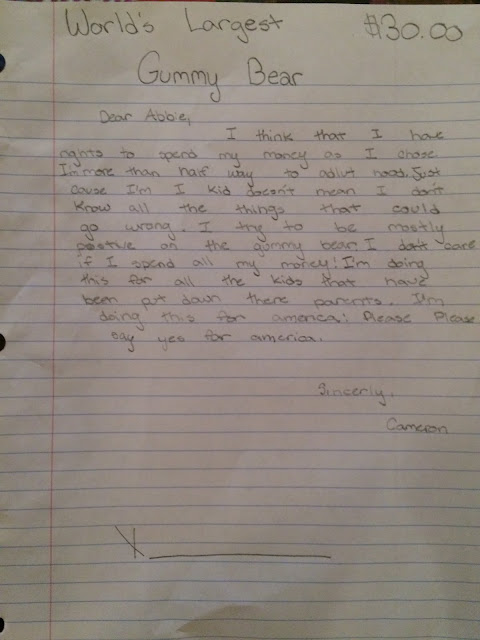 World's Largest $30.00
Gummy Bear
Dear Abbie,
I think that I have
rights to spend my money as I chose.
I'm more than half way to adlut hood. Just
cause I'm I kid doesn't mean I don't
know all the things that could
go wrong. I try to be mostly
postive on the gummy bear. I don't care
if I spend all my money! I'm doing
this for all the kids that have
been put down there parents. I'm
doing this for america! Please Please
say yes for america.
Sincerly,
Cameron
X